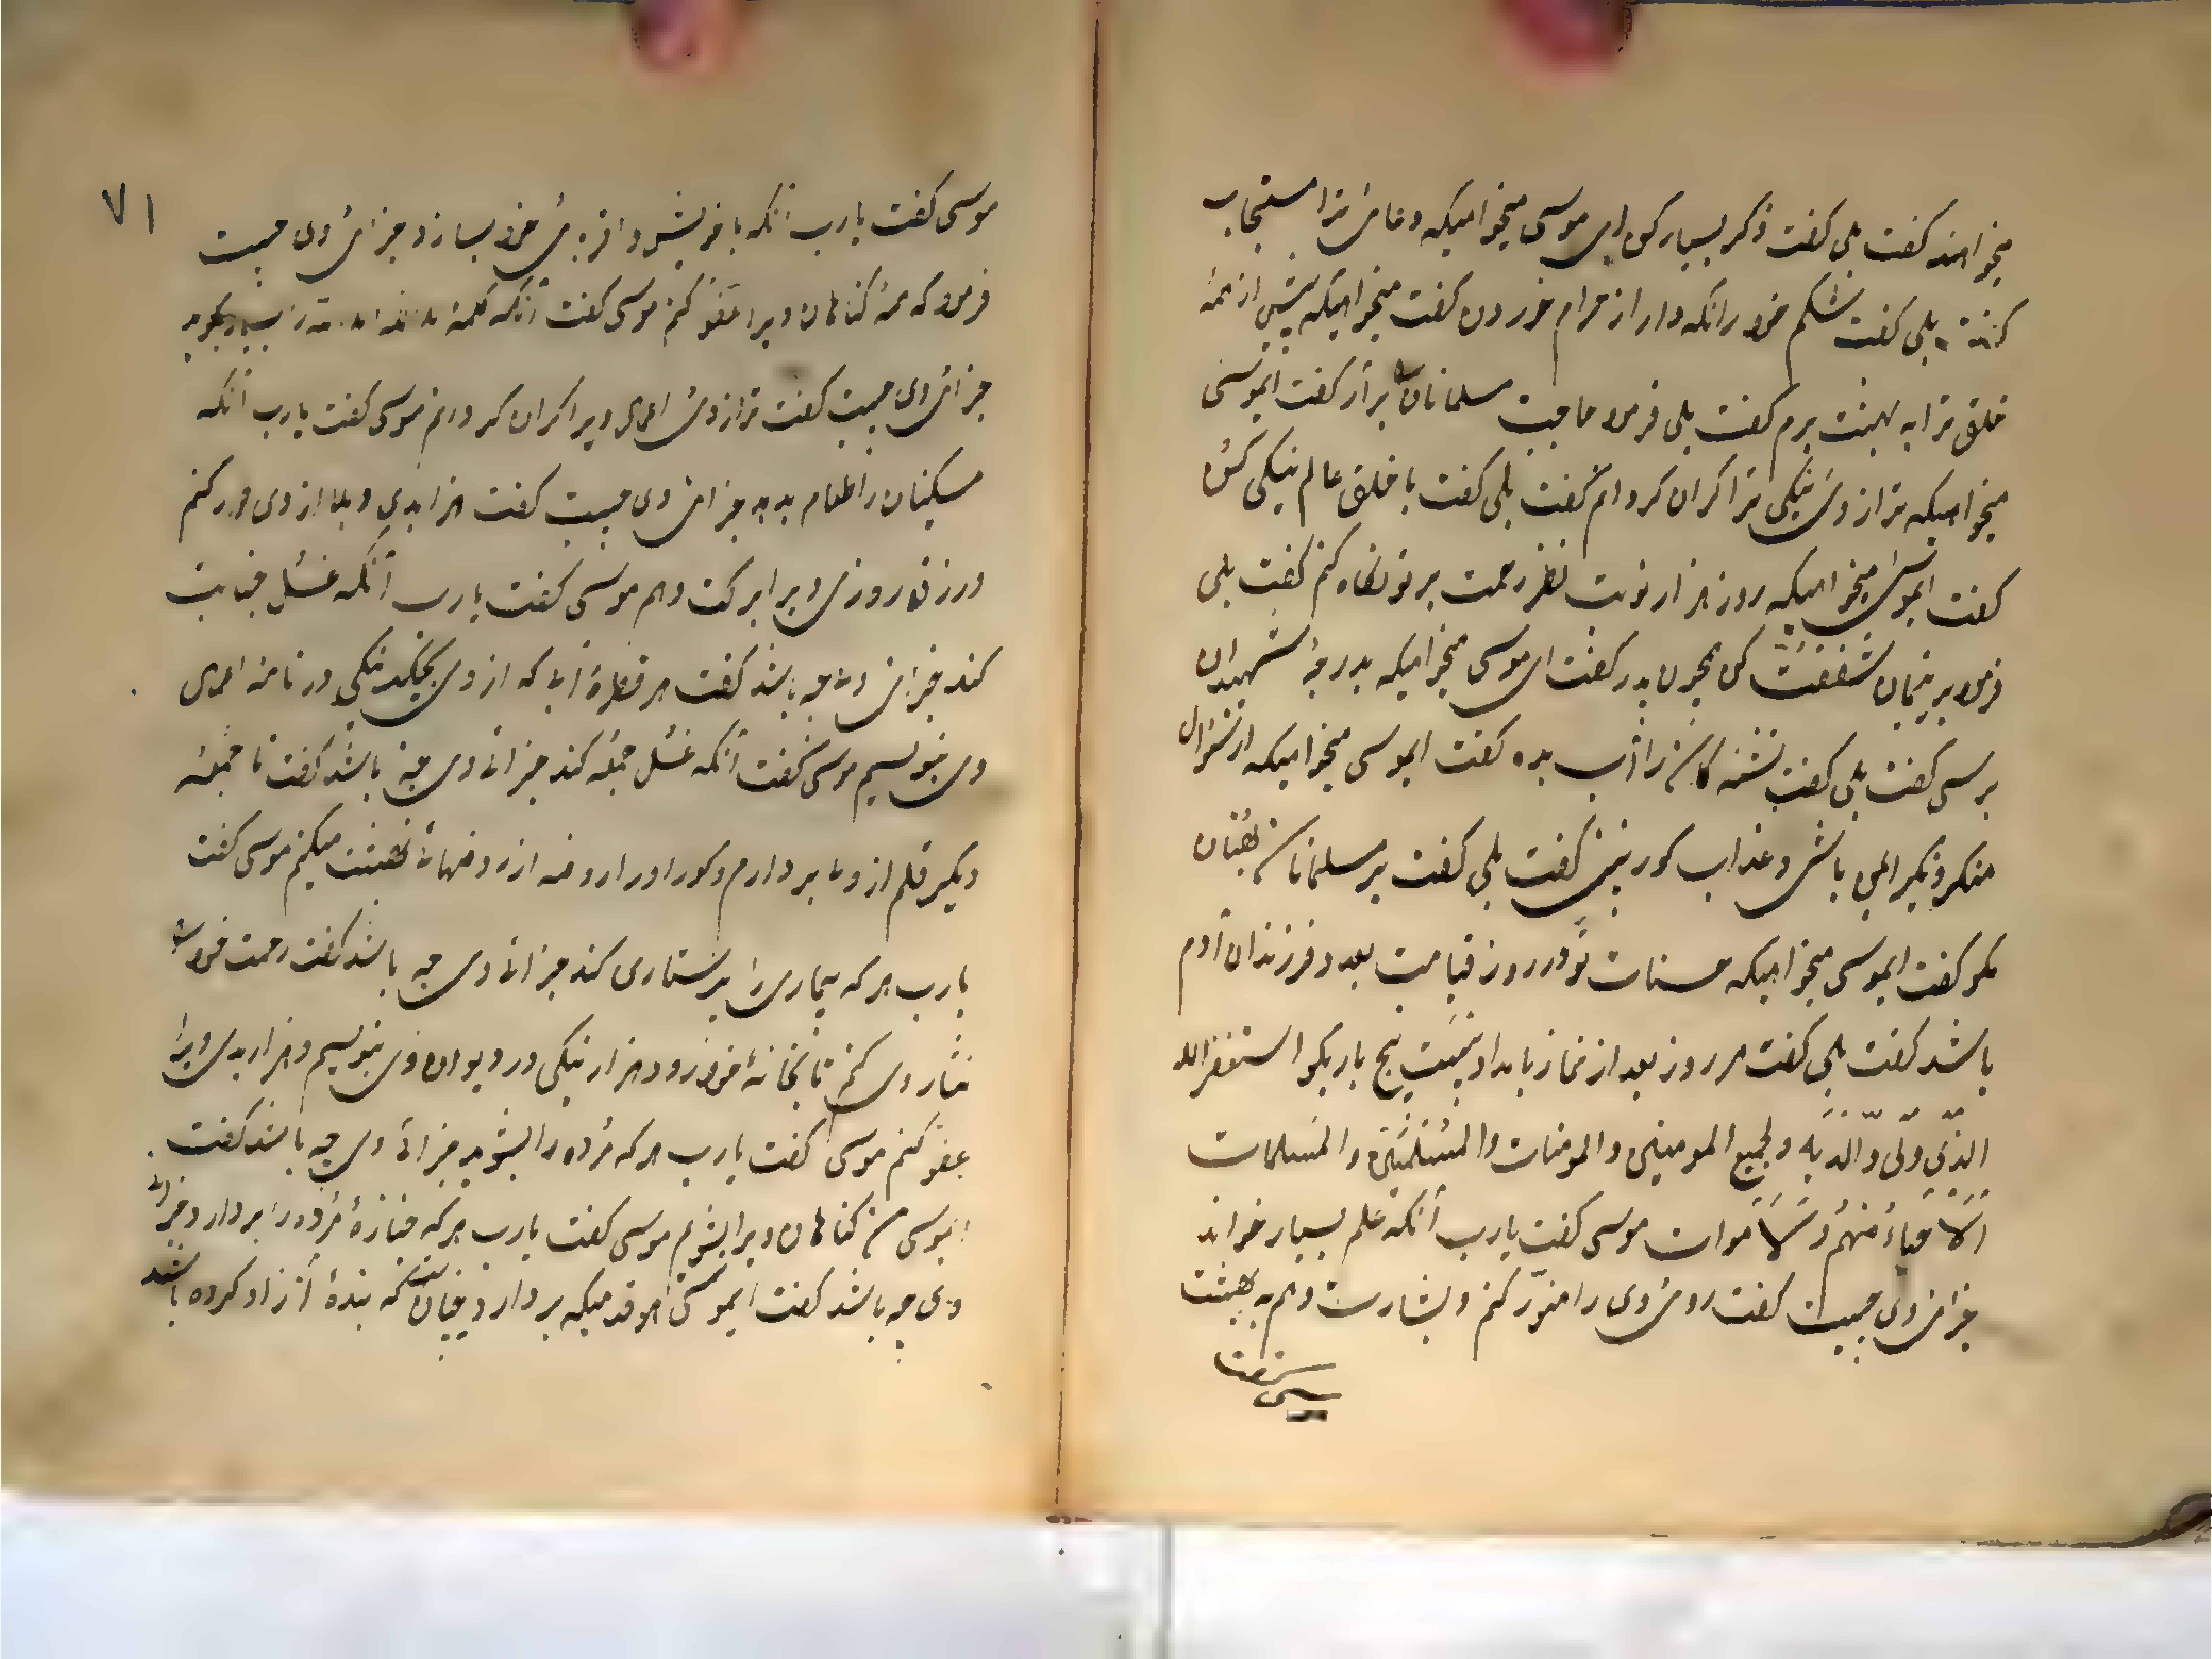 میخواهند گفت بلی گفت ذکر بسیار کن ای موسی میخواهیکه دعای ترا مستجاب
کنند بلی گفت شکم خود را نگه دار از حرام خوردن گفت میخواهیکه پیش از همهٔ
خلق ترا به بهشت برم گفت بلی فرمود حاجت مسلمانان برآر گفت ایموسی
میخواهیکه ترازوی نیکی ترا گران گردانم گفت بلی گفت با خلق عالم نیکی کن
گفت ایموسی میخواهیکه روز هزار نوبت نظر رحمت بر تو نگاه کنم گفت بلی
فرمود بر یتیمان شفقت کن همچون پدر گفت ای موسی میخواهیکه بدرجهٔ شهیدان
برسی گفت بلی گفت تشنه کان را آب بده گفت ایموسی میخواهیکه از سؤال
منکر و نکیر ایمن باشی و عذاب کور نبینی گفت بلی گفت بر مسلمانان بهتان
مگو گفت ایموسی میخواهیکه حسنات تو در روز قیامت بعدد فرزندان آدم
باشد گفت بلی گفت هر روز بعد از نماز بامداد بیست پنج بار بگو استغفر الله
الذی ولی والدیه ولجمیع المومنین والمومنات والمسلمین والمسلمات
الاحیاء منهم والاموات موسی گفت یارب آنکه علم بسیار خواند
جزای وی چیست گفت روی وی را منور کنم و بشارت دهم به بهشت
موسی گفت یارب آنکه با خویش و اقربای خود بسازد جزای وی چیست
فرمود که همهٔ کناهان ویرا عفو کنم موسی گفت آنکه کلمهٔ بسیار بگوید
جزای وی چیست گفت ترازوی اعمال ویرا گران گردانم موسی گفت یارب آنکه
مسکینان را طعام بدهد جزای وی چیست گفت هزار بدی و بلا از وی دور کنم
و رزق روزی ویرا برکت دهم موسی گفت یارب آنکه غسل جنابت
کند جزای وی چه باشد گفت هر قطرهٔ آب که از وی بچکد نیکی در نامهٔ اعمال
وی بنویسم موسی گفت آنکه غسل جمعه کند جزای وی چه باشد گفت تا جمعهٔ
دیگر قلم از وی بردارم و کور او را روضه از روضهای بهشت میکنم موسی گفت
یارب هر که بیماری را پرستاری کند جزای وی چه باشد گفت رحمت خود
نثار وی کنم تا بخانهٔ خود رود هزار نیکی در دیوان وی بنویسم و هزار بدی ویرا
عفو کنم موسی گفت یارب هر که مرده را بشوید جزای وی چه باشد گفت
ایموسی من کناهان ویرا بشویم موسی گفت یارب هر که جنازهٔ مرده را بردارد جزای
وی چه باشد گفت ایموسی هر قدمیکه بردارد چنان که بندهٔ آزاد کرده باشد
۷۱